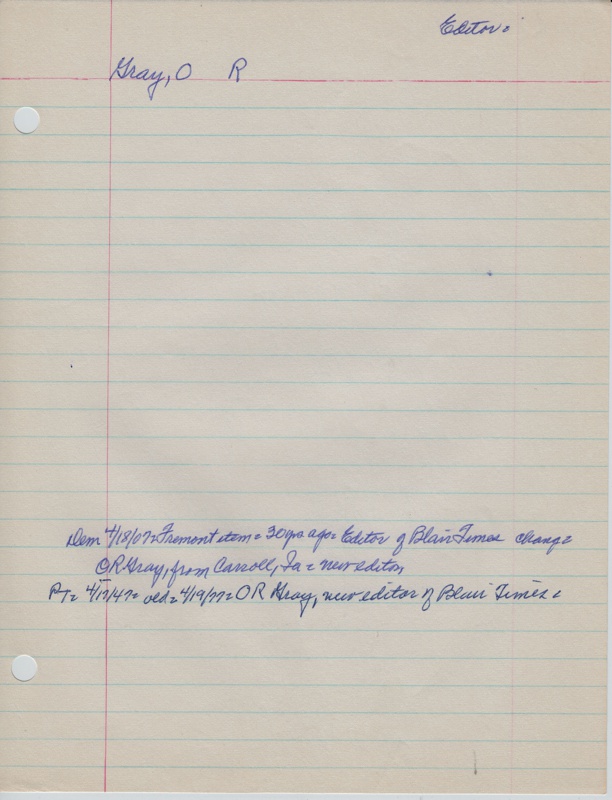 Editor=
Gray, O R
Dem 4/18/07= Fremont item= 30 yrs ago= Editor of Blair Times change=
O R Gray, from Carroll, Ia= new editor
PT= 4/17/47= old= 4/19/77= O R Gray, new editor of Blair Times=